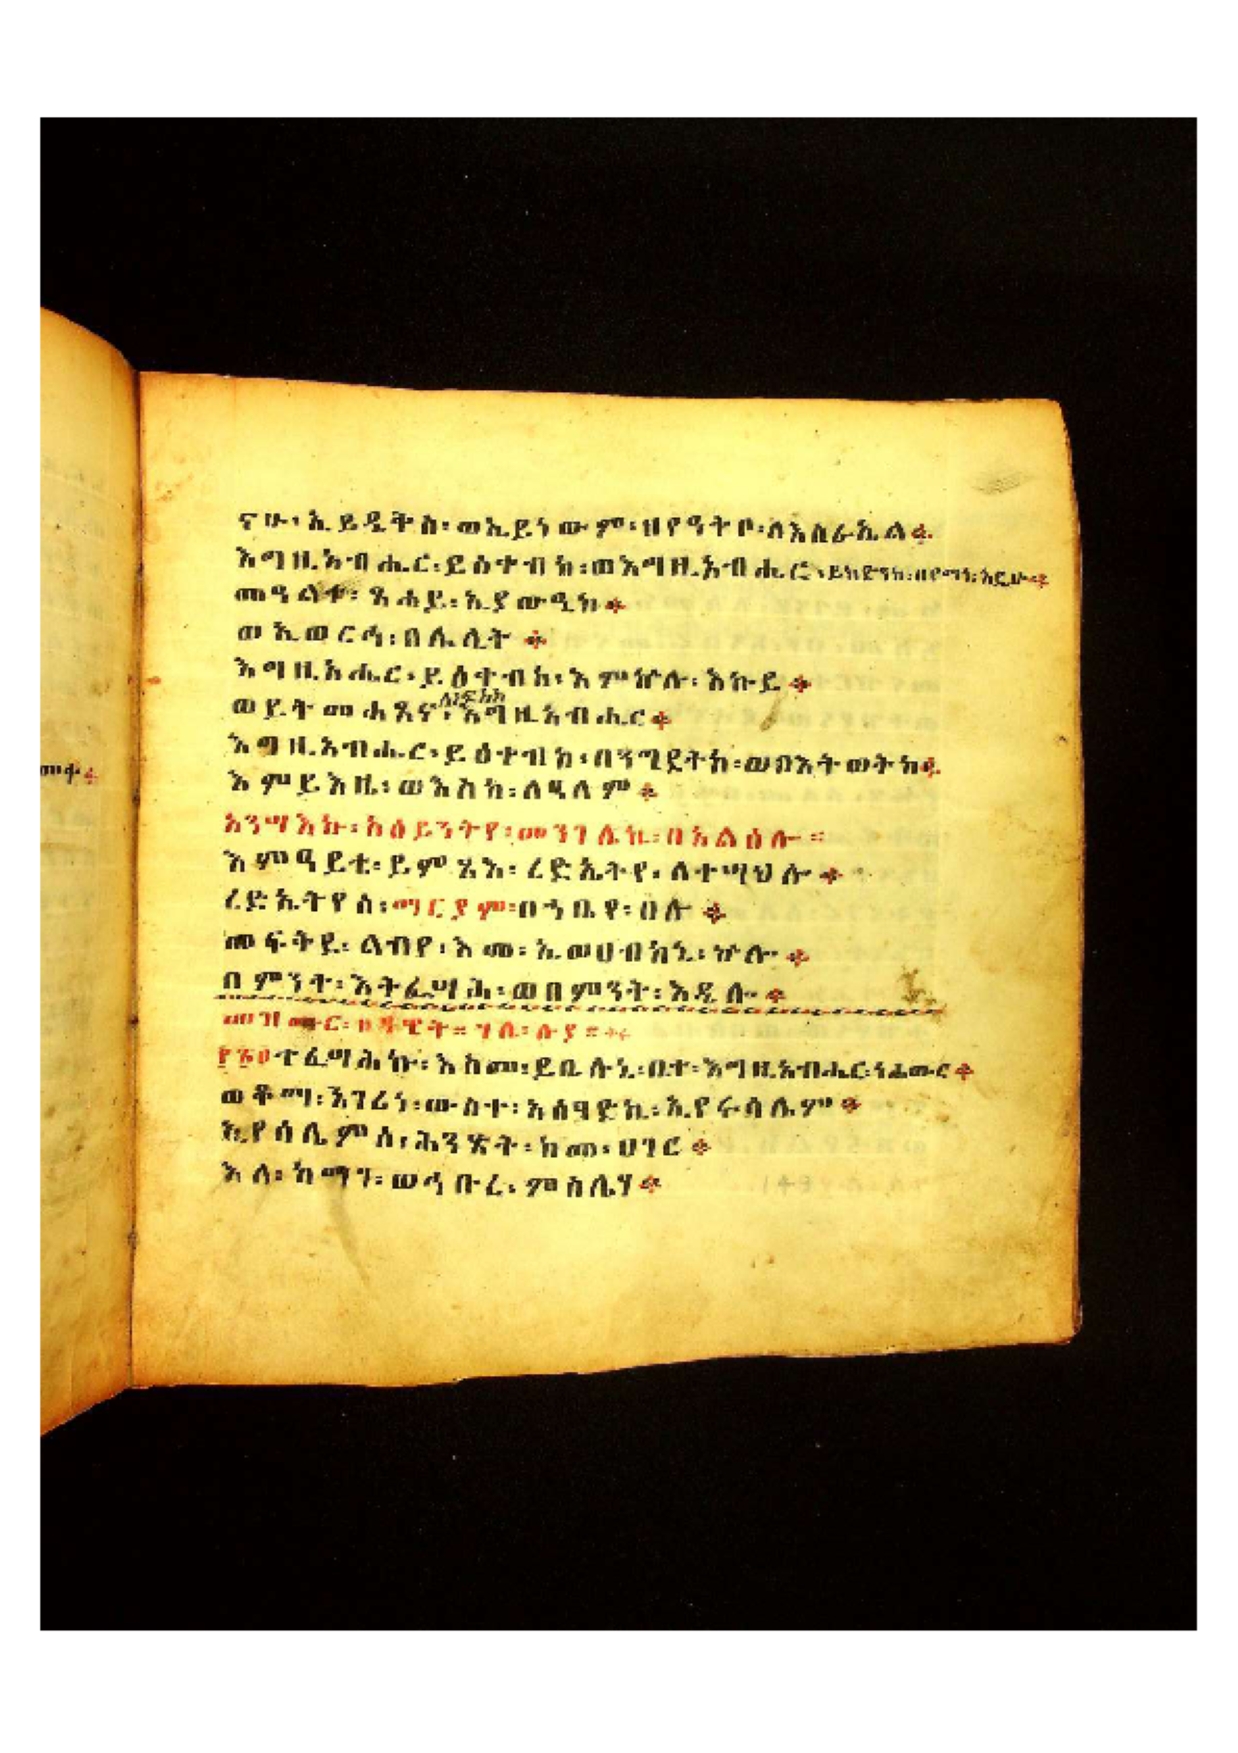 ናሁ፡ኢይዴቅስ፡ወኢይነውም፡ዘየዓትቦ፡ለእስራኤል።
እግዚአብሔር፡ይዕቀብከ፡ወእግዚአብሔር፡ይክድንከ፡በየማነ፡እዴሁ።
መዓልተ፡ፀሓይ፡ኢያውዒከ።
ወኢወርኅ፡በሌሊት።
እግዚአሔር፡ይዕቀብከ፡እምኵሉ፡እኩይ።
ለነፍስከ
ወይትመሐፀና፡እግዚአብሔር።
እግዚአብሔር፡ይዕቀብከ፡በንግደትከ፡ወበእትወትከ።
እምይእዜ፡ወእስከ፡ለዓለም።
አንሣእኩ፡አዕይንትየ፡መንገሌኪ፡በአልዕሎ።
እምዓይቴ፡ይምጻእ፡ረድኤትየ፡ለተሣህሎ።
ረድኤትየሰ፡ማርያም፡በኀቤየ፡ሀሎ።
መፍትይ፡ልብየ፡እመ፡ኢወሀብክኒ፡ኵሎ።
በምንት፡እትፌሣሕ፡ወበምንት፡እዴሎ።
መዝሙር፡ዘዳዊት።ሃሌ፡ሉያ።
፻፳፩ተፈሣሕኩ፡እስመ፡ይቤሉኒ፡ቤተ፡እግዚአብሔር፡ነሐውር።
ወቆማ፡እገሪነ፡ውስተ፡አዐፃድኪ፡ኢየሩሳሌም።
ኢየሳሌምሰ፡ሕንጽት፡ከመ፡ሀገር።
እለ፡ከማሃ፡ወኅቡረ፡ምስሌሃ።
መቅ።